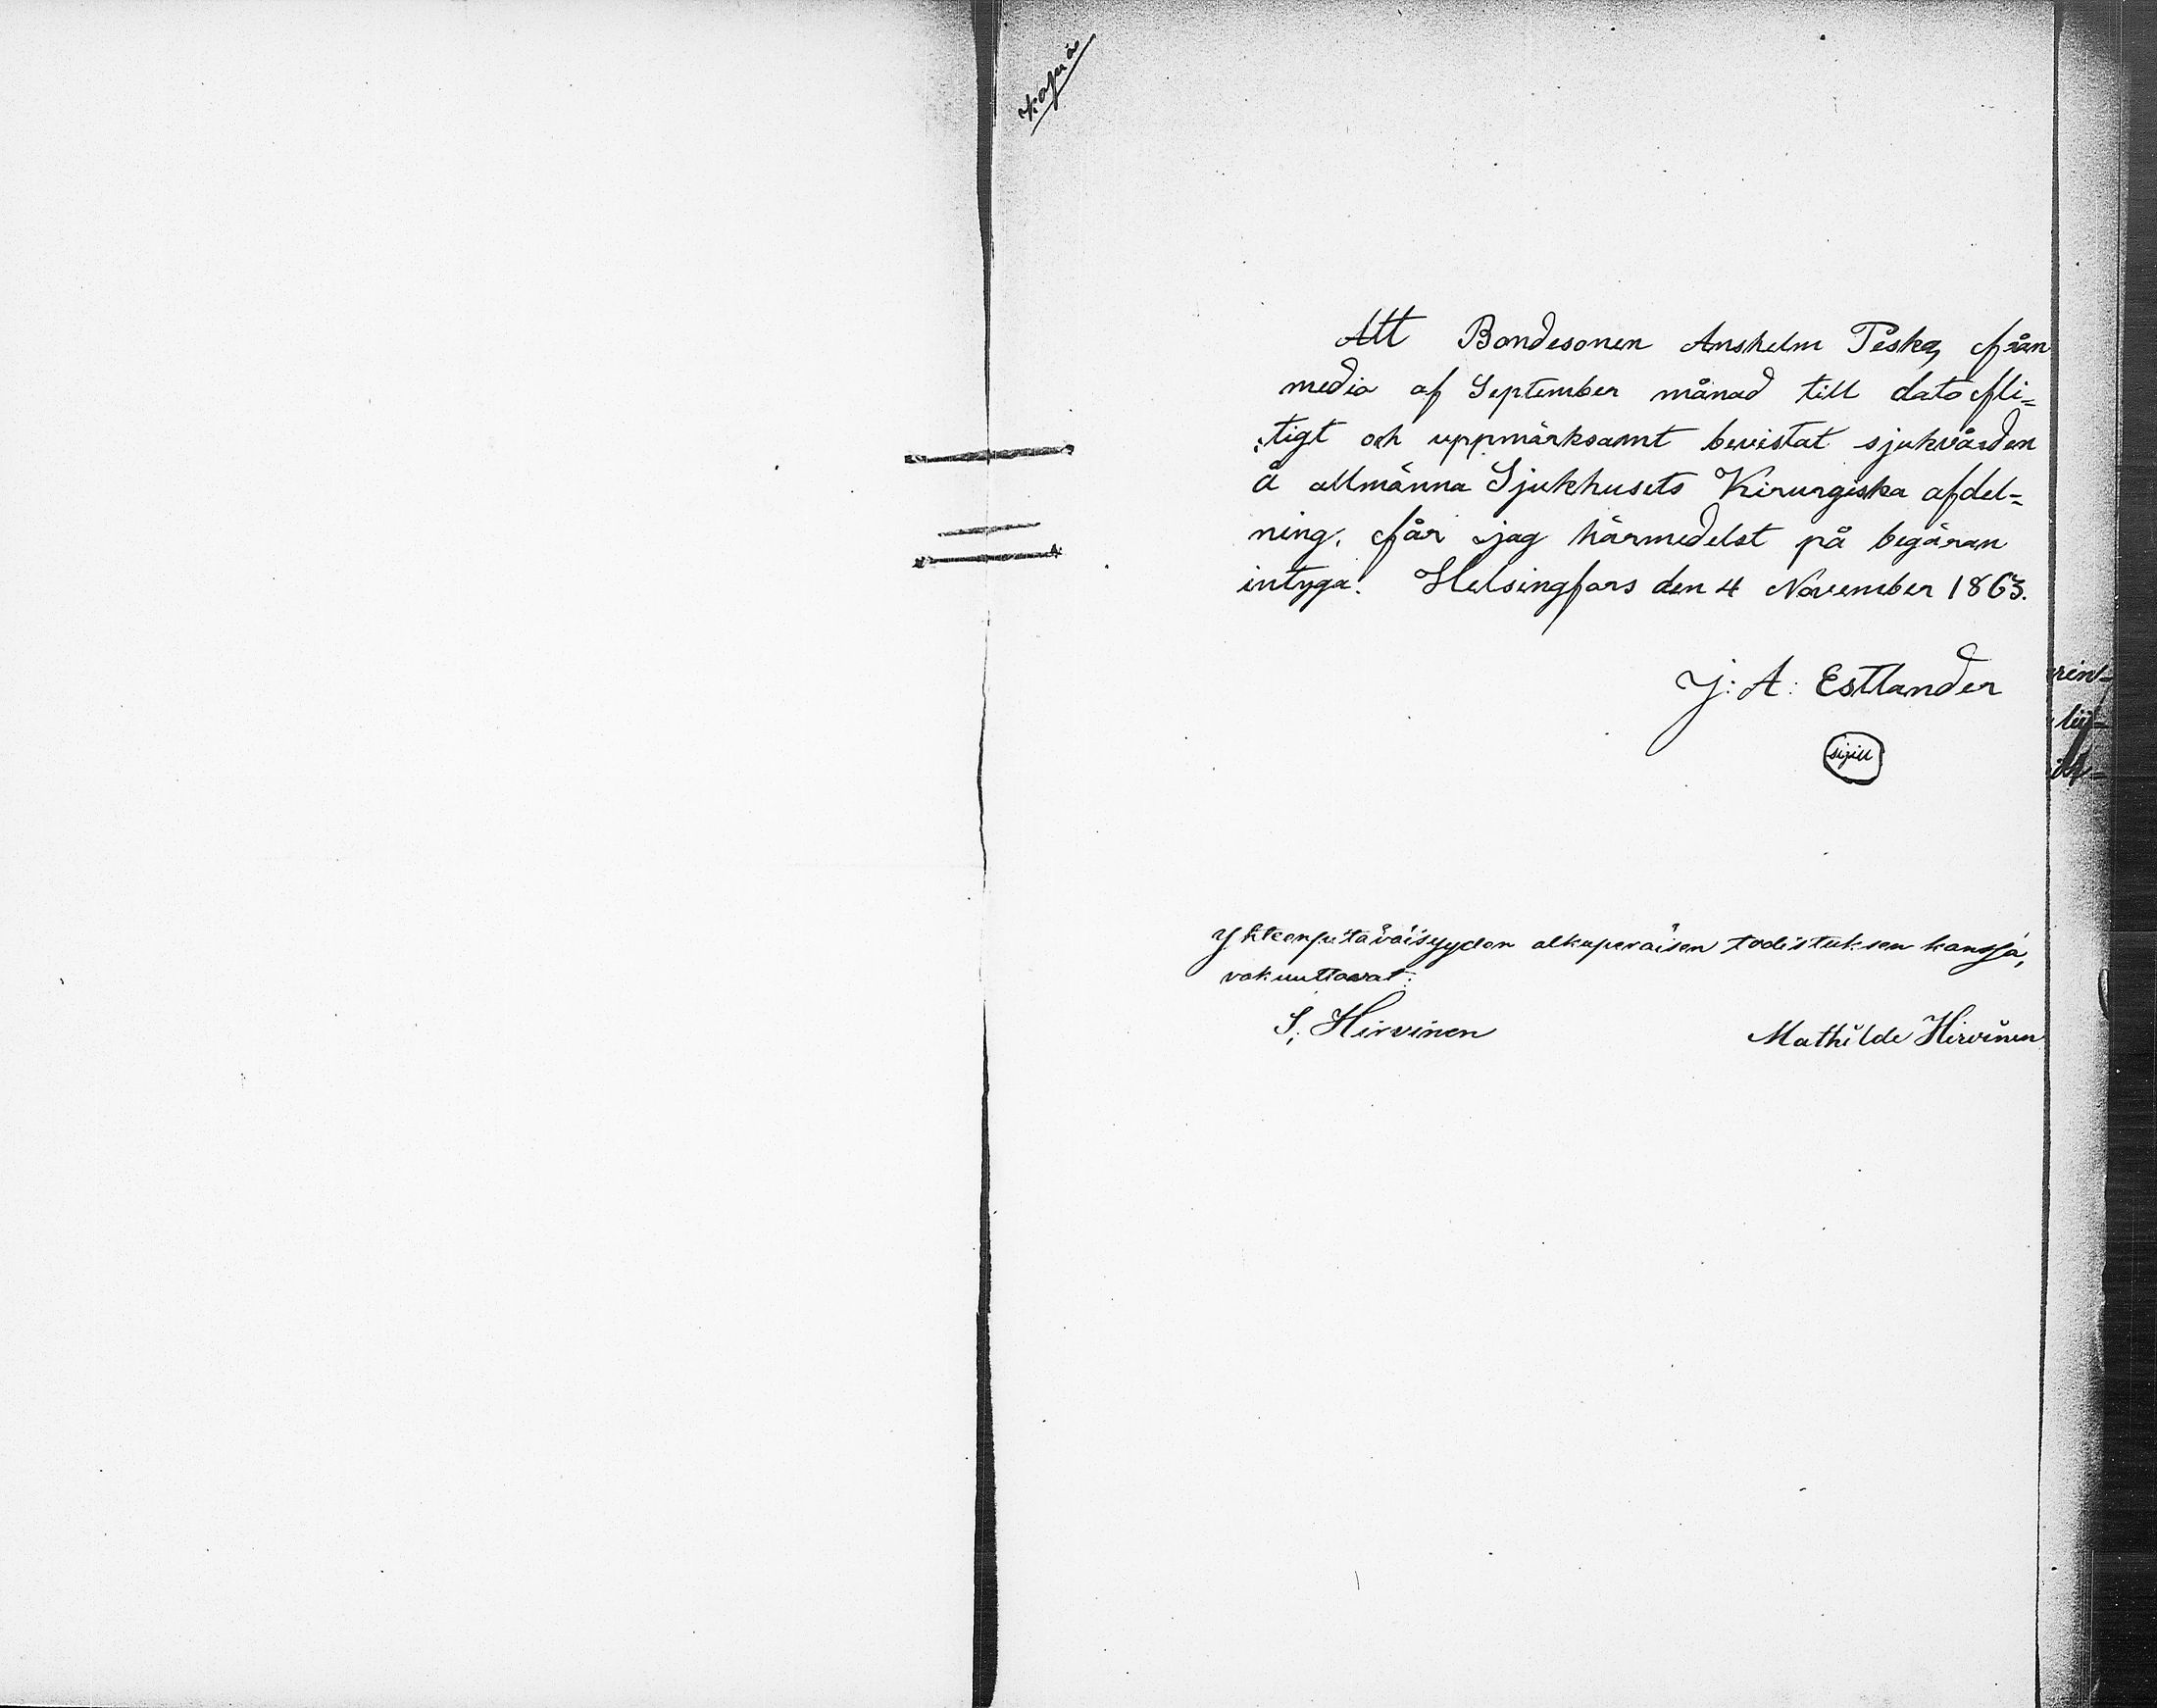 kopia
Att Bondesonen Anshelm Peska, från
media af September månad till dato fli=
tigt och uppmärksamt bevistat sjukvården
å allmänna Sjukhusets Kirurgiska afdel=
ning, får jag härmedelst på begäran
intyga. Helsingfors den 4 November 1863.
J: A: Estlander
sigill
Yhteenpitäväisyyden alkuperäisen todistuksen kanssa,
vakuuttavat:
S. Hirvinen Mathilde Hirvinen